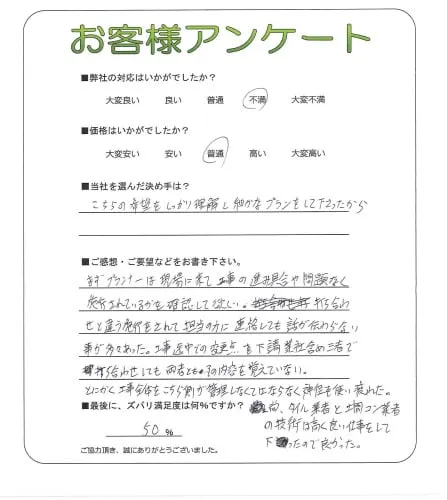 お客様アンケート
■弊社の対応はいかがでしたか?
大変良い 良い 普通 不満 大変不満
■価格はいかがでしたか?
大変安い 安い 普通 高い 大変高い
■当社を選んだ決め手は?
こちらの希望をしっかり理解し細かなプランをして下さったから
■ご感想・ご要望などをお書き下さい。
まずプランナーは現場に来て工事の進み具合や問題なく
発行されているかを確認して欲しい。打ち合わ
せと違う発行をされて担当の方に連絡しても話が伝わらない
事が多々あった。工事途中での変更点を下請業社含め三者で
打ち合わせしても両者ともその内容を覚えていない。
とにかく工事全体をこちら側が管理しなくてはならなく神経を使い疲れた。
■最後に、ズバリ満足度は何%ですか?
50 %
タイル業者と土間コン業者
の技術は高く良い仕事をして
下さったので良かった。
ご協力頂き、誠にありがとうございました。